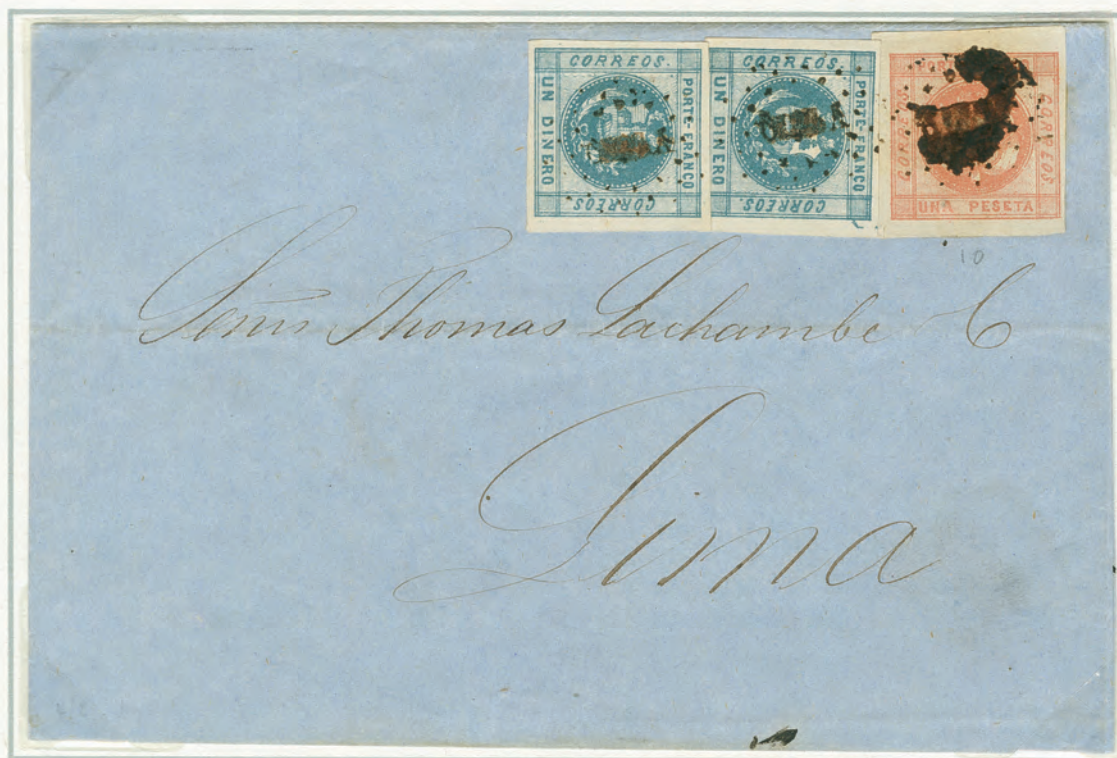 CORREOS.
UN DINERO
PORTE-FRANCO
CORREOS.
CORREOS.
UN DINERO
PORTE-FRANCO
CORREOS.
CORREOS
CORREOS
UNA PESETA
10
Thomas Lachambe C
Lima